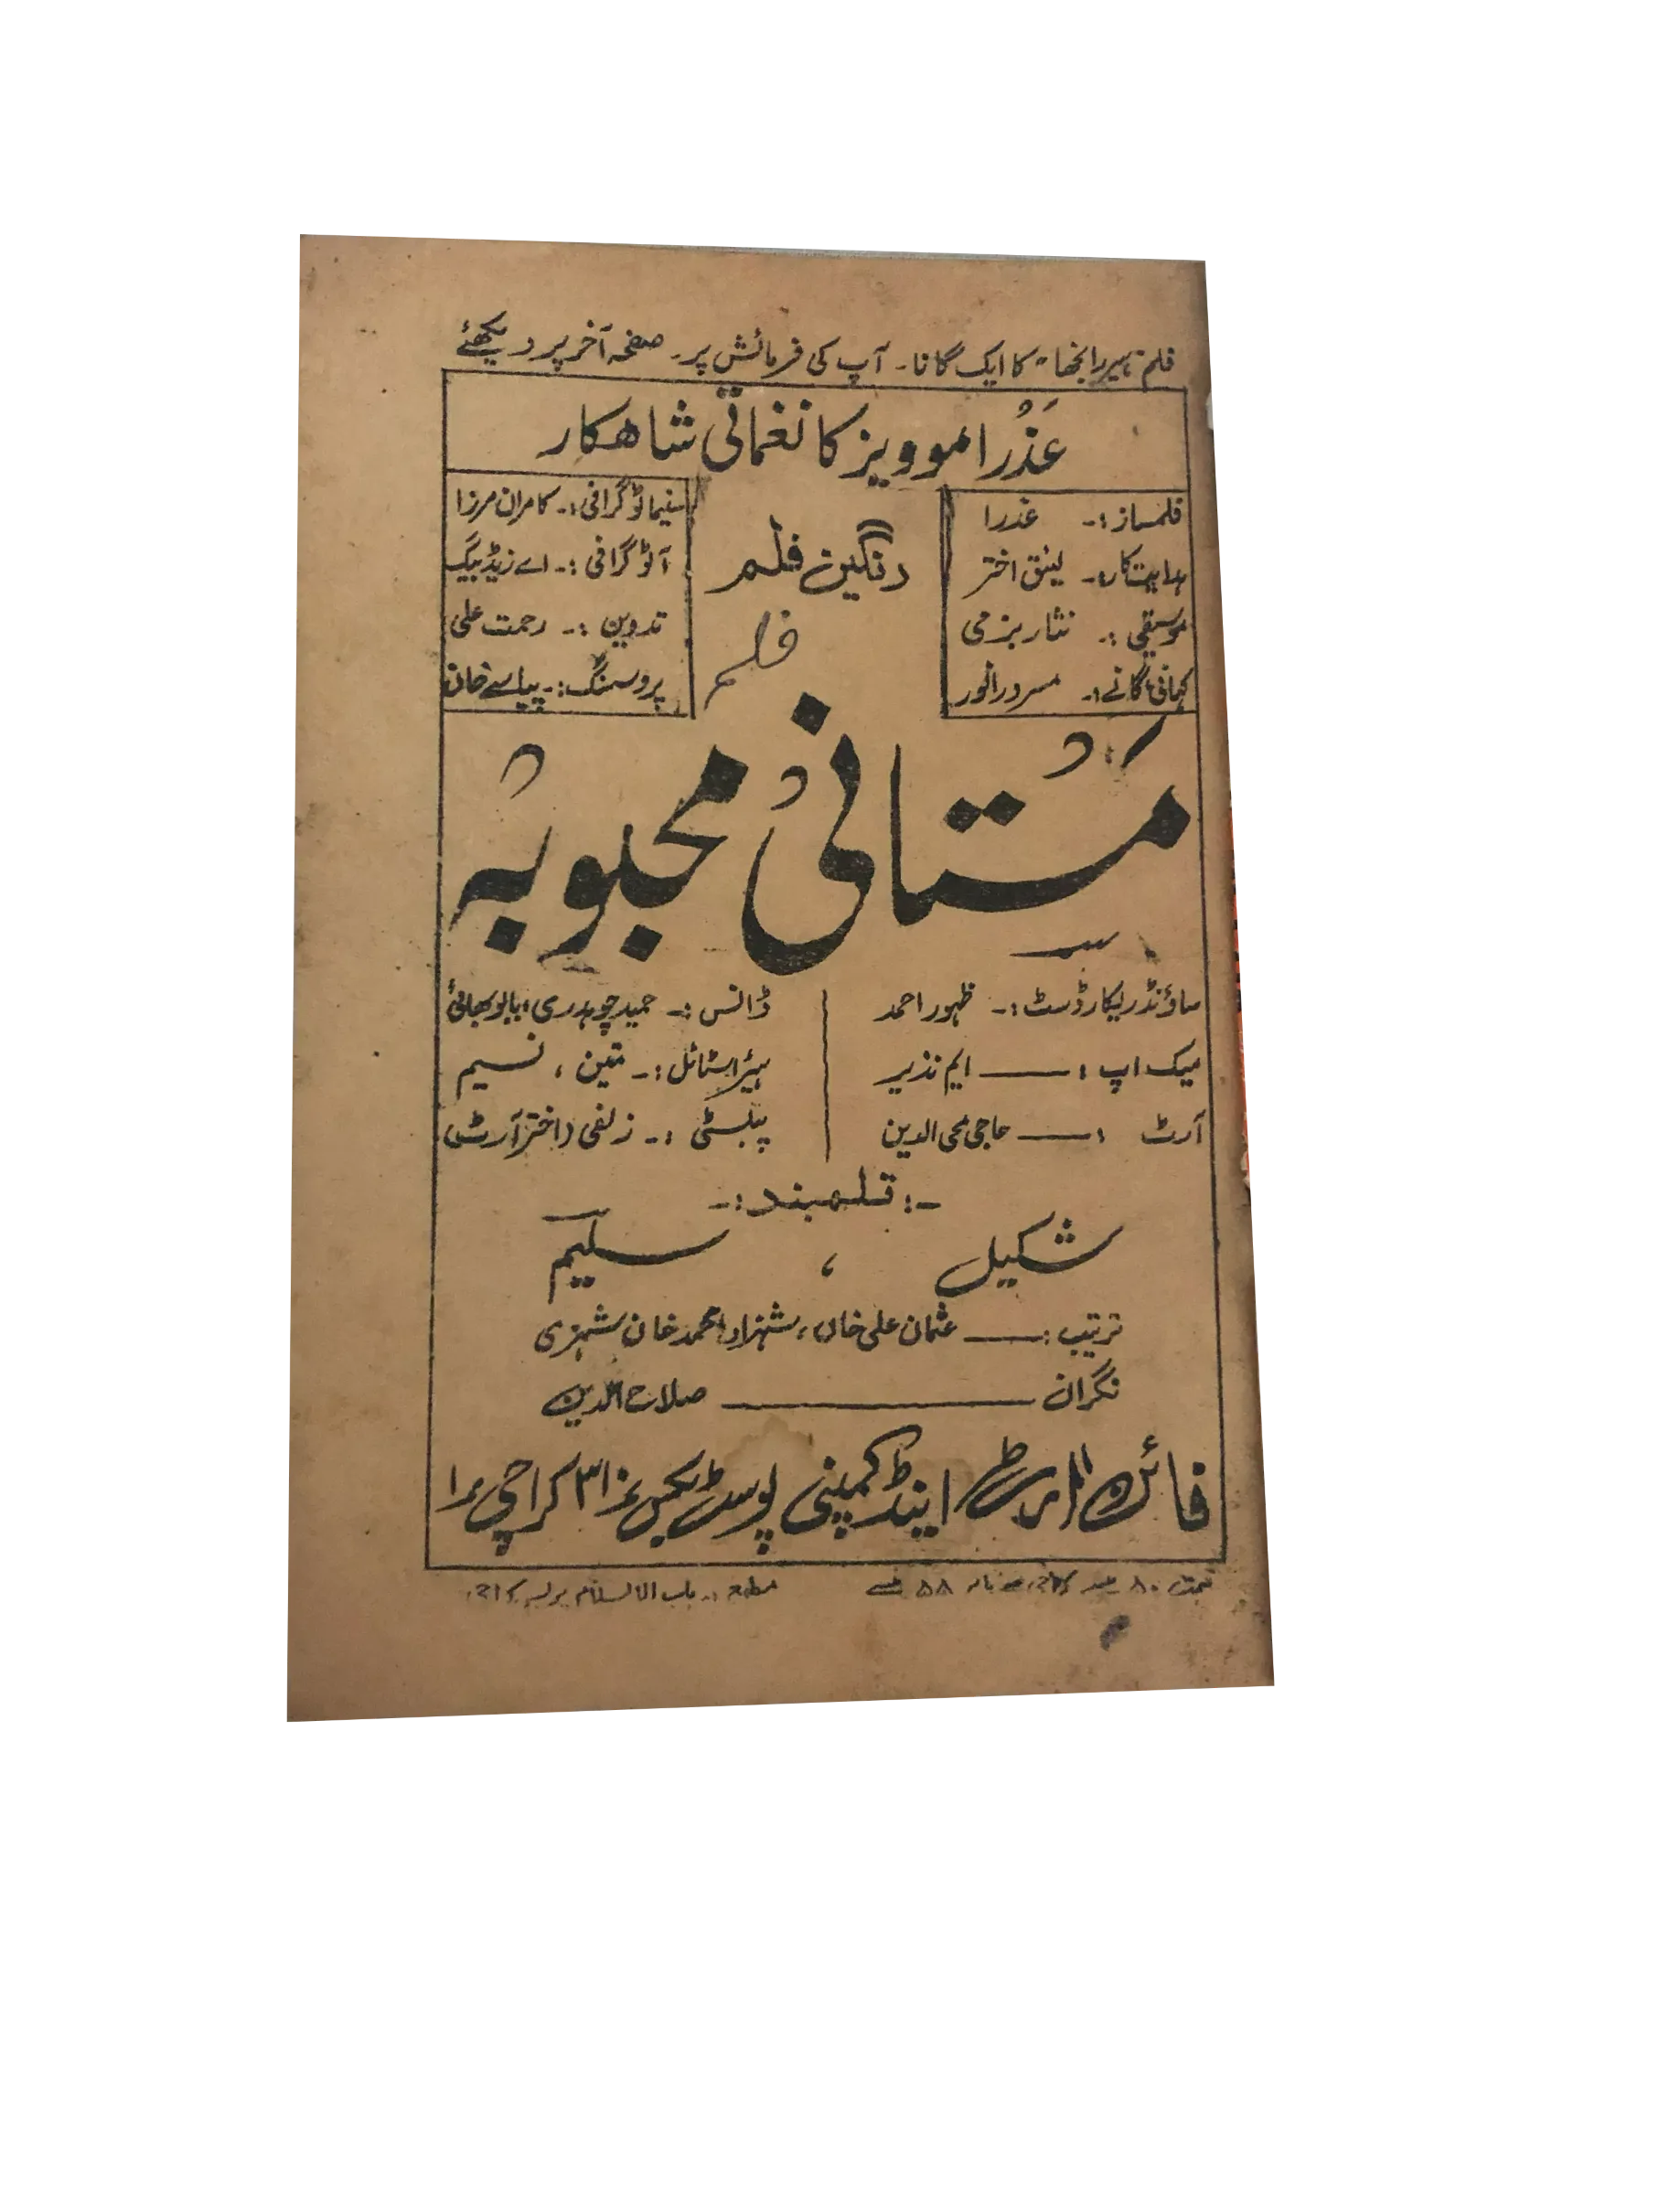 فلم "ہیر رانجھا" کا ایک گانا۔ آپ کی فرمائش پر۔ صفحہ آخر پر دیکھئے
عَذُرا موویز کا نغماتی شاھکار
فلمساز :۔ عذرا
ہدایتکار :۔ لئیق اختر
موسیقی :۔ نثار بزمی
کہانی گانے :۔ مسرور انور
رنگین فلم
فلم
سنیماٹوگرافی :۔ کامران مرزا
آٹوگرافی :۔ اے زیڈ بیگ
تدوین :۔ رحمت علی
پروسسنگ :۔ پیاسے خان
مستانی محبوبہ
ساؤنڈ ریکارڈسٹ :۔ ظہور احمد
میک اپ : ایم نذیر
آرٹ : حاجی محی الدین
ڈانس :۔ حمید چوہدری، بابو بھائی
ہیئر اسٹائل :۔ متین ، نسیم
پبلسٹی :۔ زلفی (اختر آرٹس
۔: قلمبند :۔
شکیل ، سلیم
ترتیب : عثمان علی خاں، شہزاد احمد خان شہزی
نگران صلاح الدین
فائن آرٹ اینڈ کمپنی پوسٹ بکس نمبر ۳۱ کراچی ۱
قیمت ۸۰ پیسے کراچی سے باہر ۸۸ پیسے مطبع :۔ باب الاسلام پریس کراچی